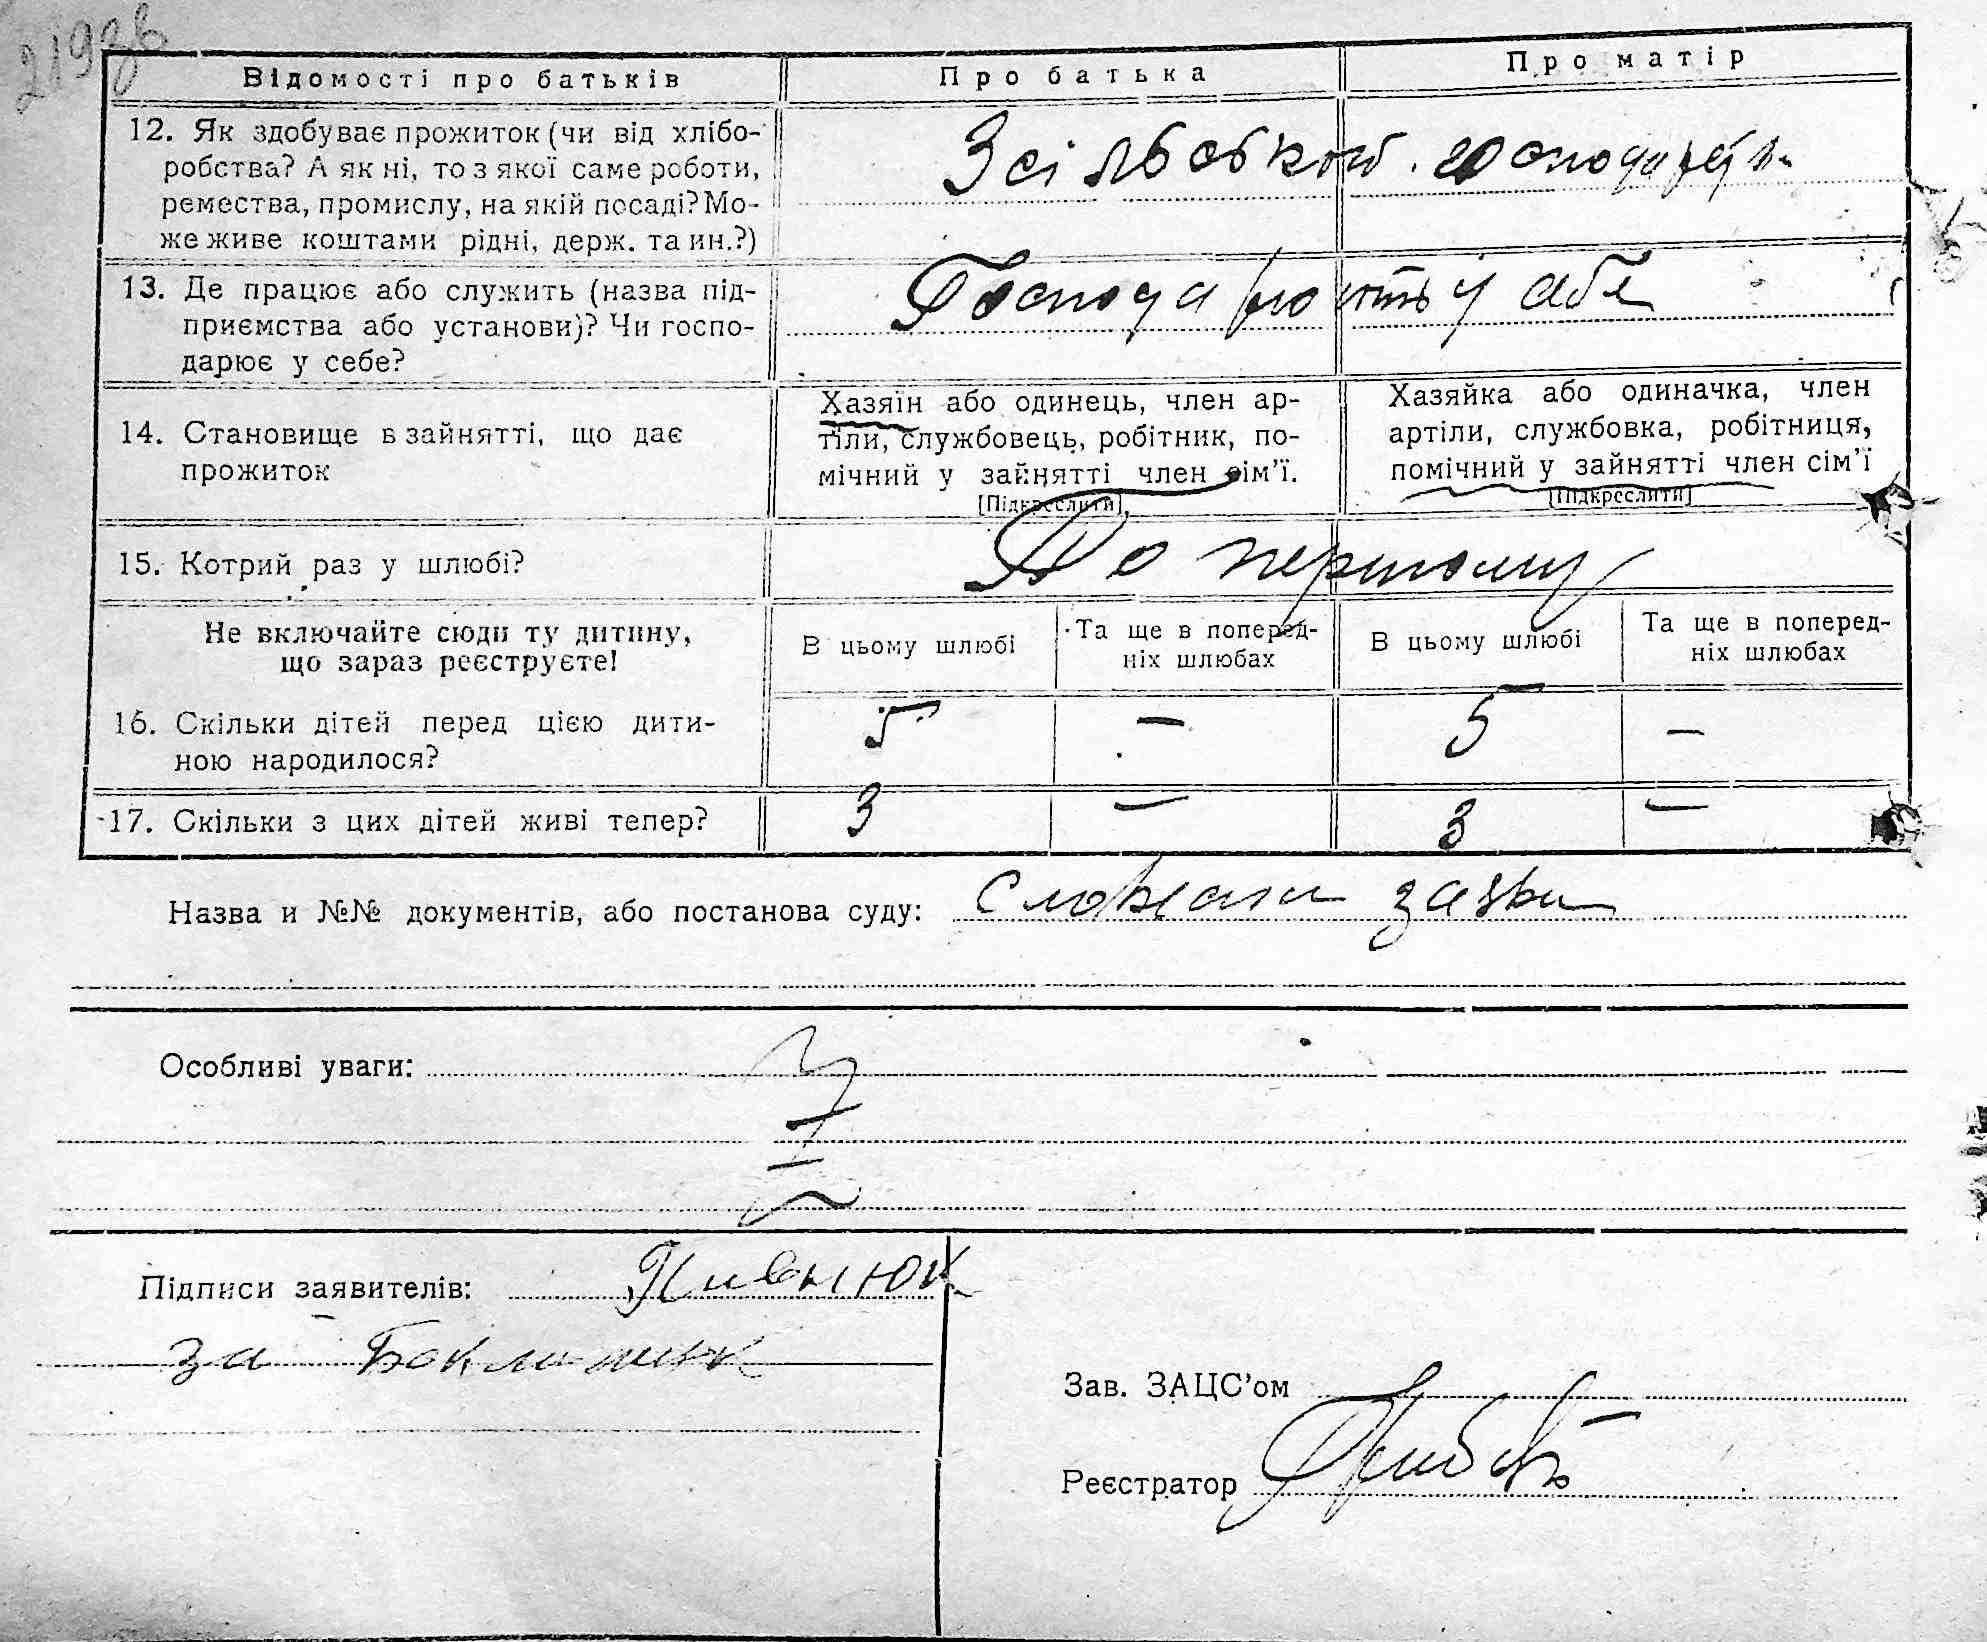 219зв
Відомості про батьків Про батька Про матір
12. Як здобуває прожиток (чи від хлібо-
робства? А як ні, то з якої саме роботи,
ремества, промислу, на якій посаді? Мо-
же живе коштами рідні, держ. та ин.?)
З сільської господарств
13. Де працює або служить (назва під-
приємства або установи)? Чи госпо-
дарює у себе?
Господарюють у себе
14. Становище в зайнятті, що дає
прожиток
Хазяїн або одинець, член ар-
тіли, службовець, робітник, по-
мічний у зайнятті член сім'ї.
[Підкреслити]
Хазяйка або одиначка, член
артіли, службовка, робітниця,
помічний у зайнятті член сім'ї
[Підкреслити]
15. Котрий раз у шлюбі?
По першому
Не включайте сюди ту дитину,
що зараз реєструєте!
В цьому шлюбі
Та ще в поперед-
ніх шлюбах
В цьому шлюбі
Та ще в поперед-
ніх шлюбах
16. Скільки дітей перед цією дити-
ною народилося?
5 — 5 —
17. Скільки з цих дітей живі тепер? 3 — 3 —
Назва и №№ документів, або постанова суду:
Особливі уваги:
Підписи заявителів: Пивнюк
за
Зав. ЗАЦС'ом
Реєстратор